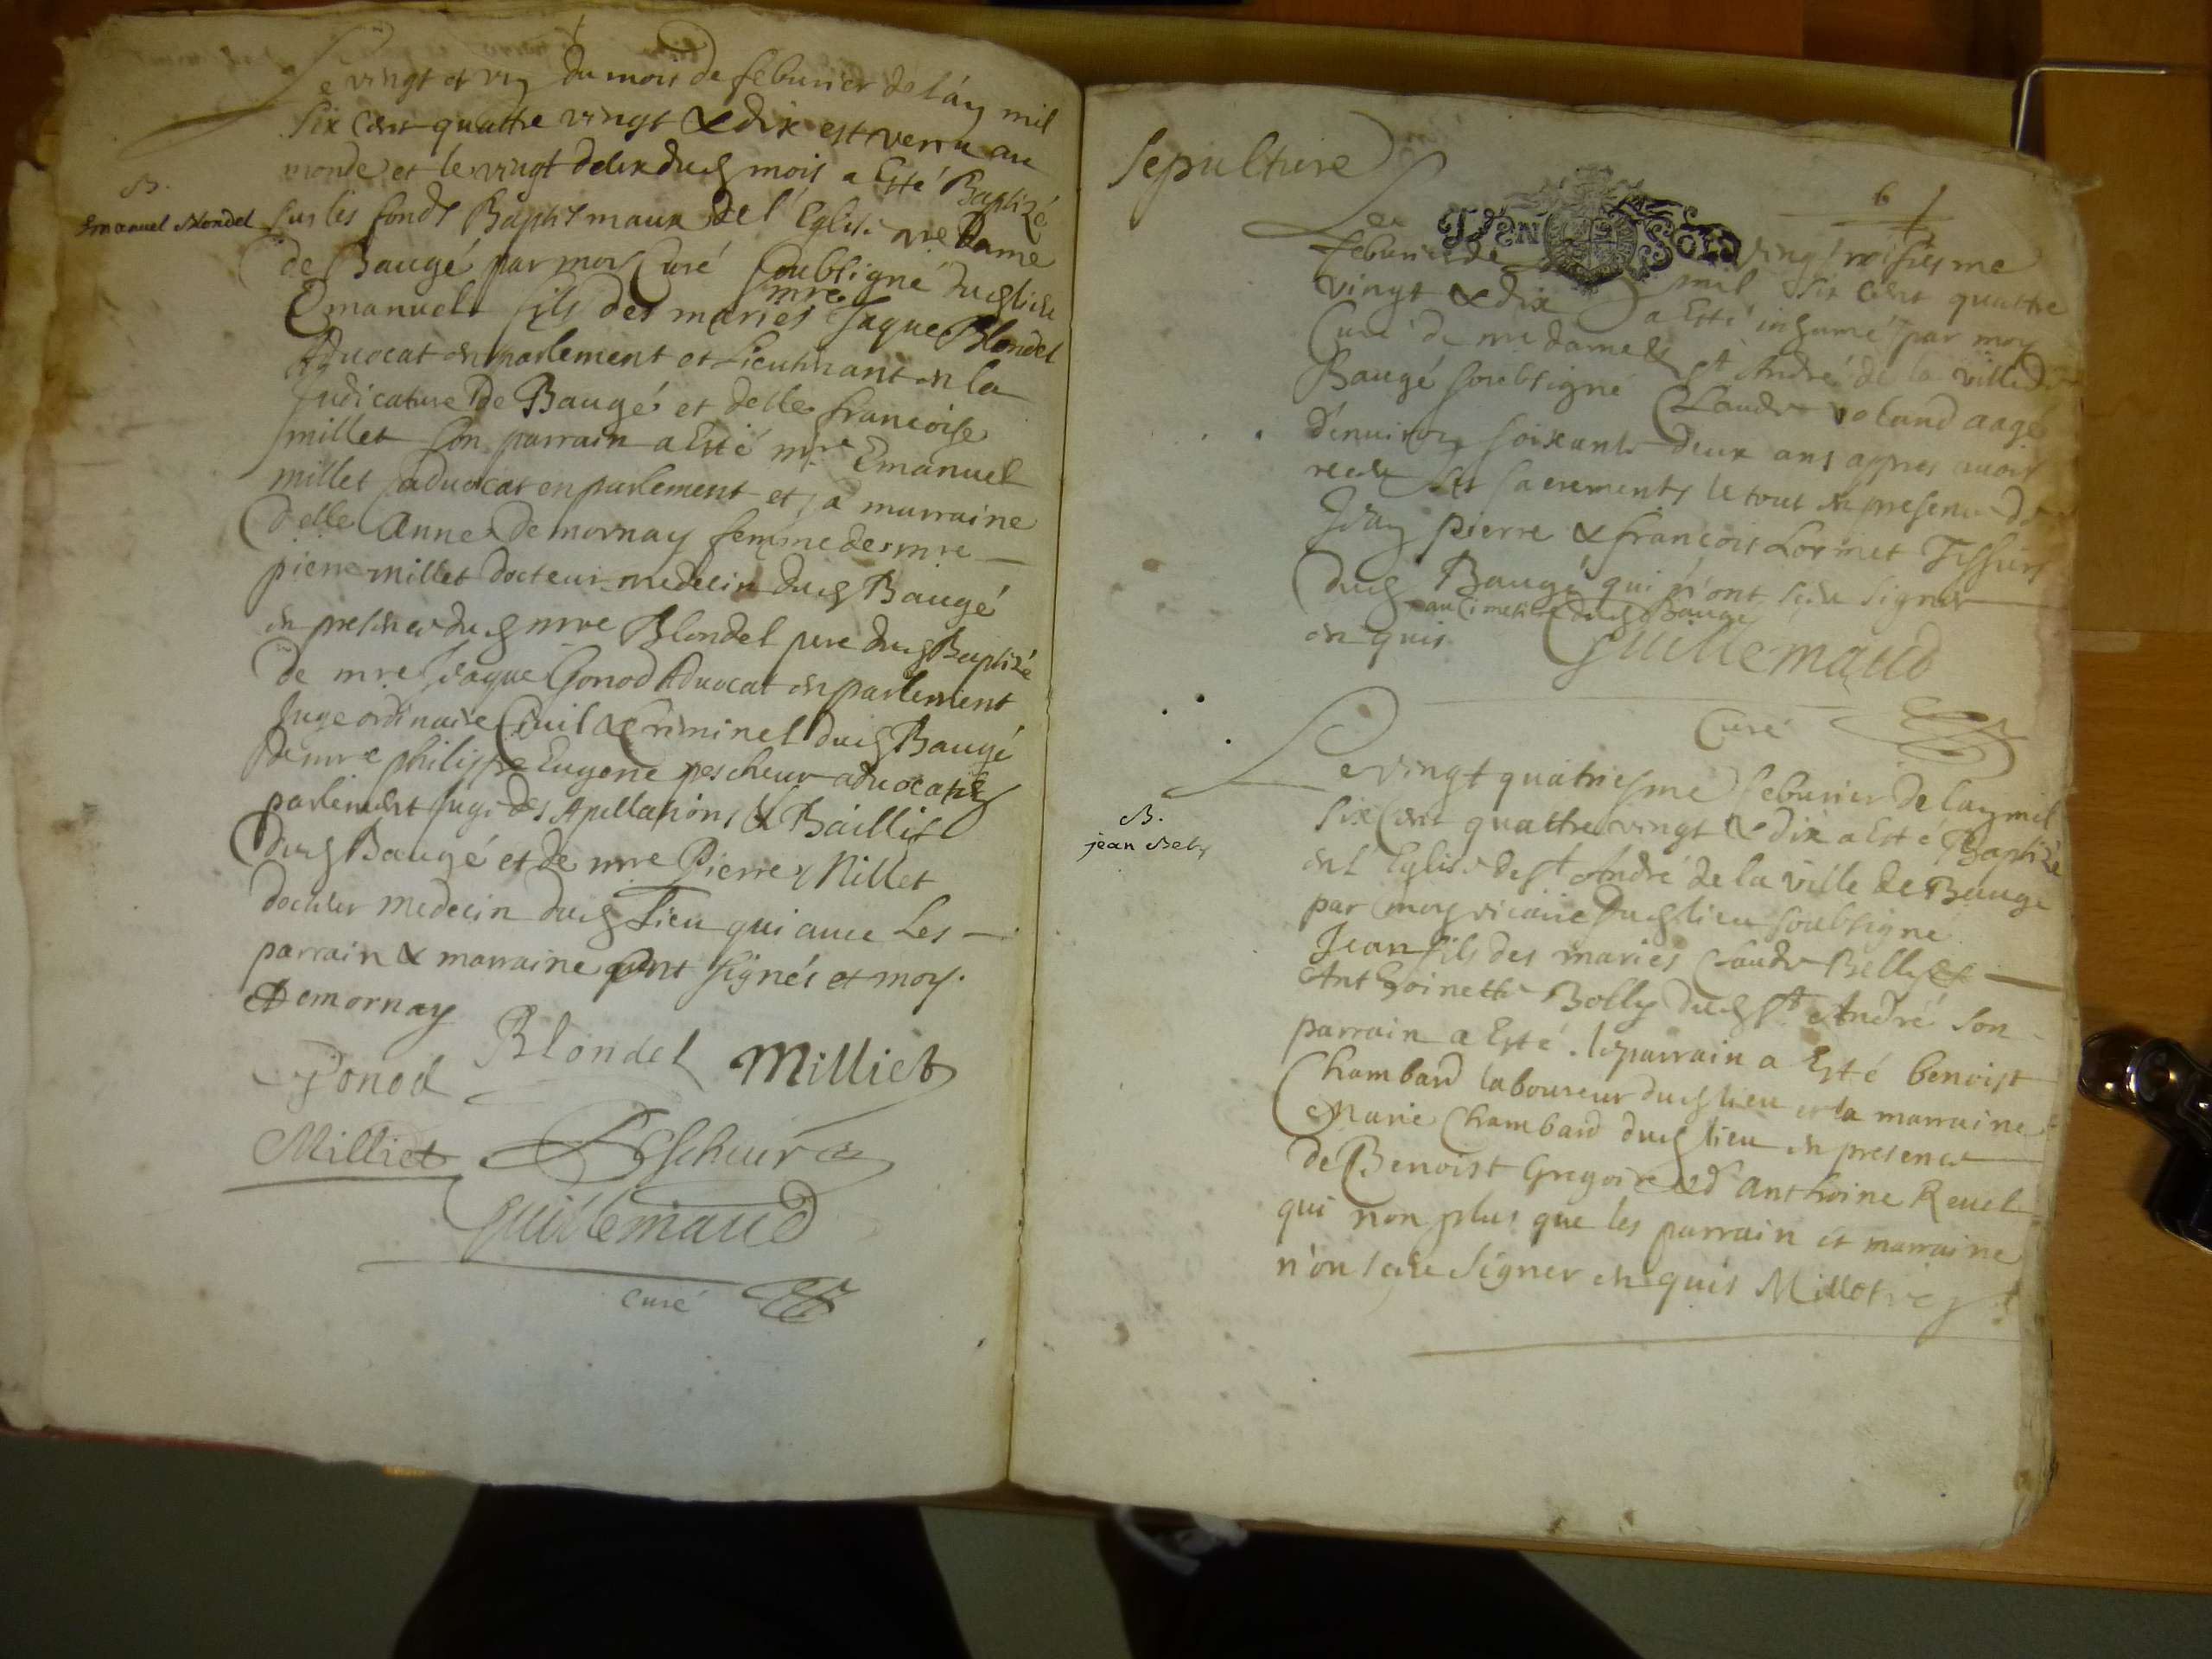 Le vingt et un du mois de feburier de l'an mil
six cent quattre vingt & dix est venu au
monde et le vingt deux dud mois a Esté Baptizé
B.
Emanuel Blondel
sur les fonds Baptismaux de l'Eglise nre Dame
de Baugé par moy Curé soubsigné dud lieu
Emanuel fils des mariés mre Jaque Blondel
Aduocat en parlement et Lieutenant en la
Judicature de Baugé et delle francoise
millet son parrain a Esté mre Emanuel
millet aduocat en parlement et sa marraine
delle Anne de mornay femme de mre
pierre millet docteur medecin dud Baugé
en presence dud mre Blondel pere dud Baptizé
de mre Jaque Gonod Aduocat en parlement
Juge ordinaire Ciuil & Criminel dud Baugé
de mre philippe Eugene pescheur aduocat en
parlement juge des Apellations & Baillif
dud Baugé et de mre Pierre Millet
docteur medecin dud Lieu qui auec Les
parrain & marraine sont signés et moy.
Demornay
Blondel Milliet
Gonod
Milliet Pescheur
Guillemaud
curé
sepulture
6
Le vingt troisiesme
TYEN SOLD
feburier de mil six cent quattre
vingt & dix a Esté inhumé par moy
Curé de nre dame & st André de la ville de
Baugé soubsigné Claude Voland aagé
d'enuiron soixante deux ans appres auoir
receu les sacrements le tout en presence de
Jean pierre & francois Lormet Tissiers
dud Baugé qui n'ont sceu signer
au Cimetiere dud Baugé
en quis Guillemaud
Curé
Le vingt quatriesme feburier de lan mil
B.
jean Bely
six Cent quattre vingt & dix a Esté Baptizé
en l'Eglise de st André de la ville de Baugé
par moy vicaire dud lieu soubsigné
Jean fils des mariés Claude Belly &
Anthoinette Bolly dud st André son
parrain a Esté. le parrain a Esté benoist
Chambard laboureur dud lieu et la marraine
Marie Chambard dud lieu en presence
de Benoist Gregoire & d'anthoine Reuel
qui non plus que les parrain et marraine
n'on sceu signer en quis Millot